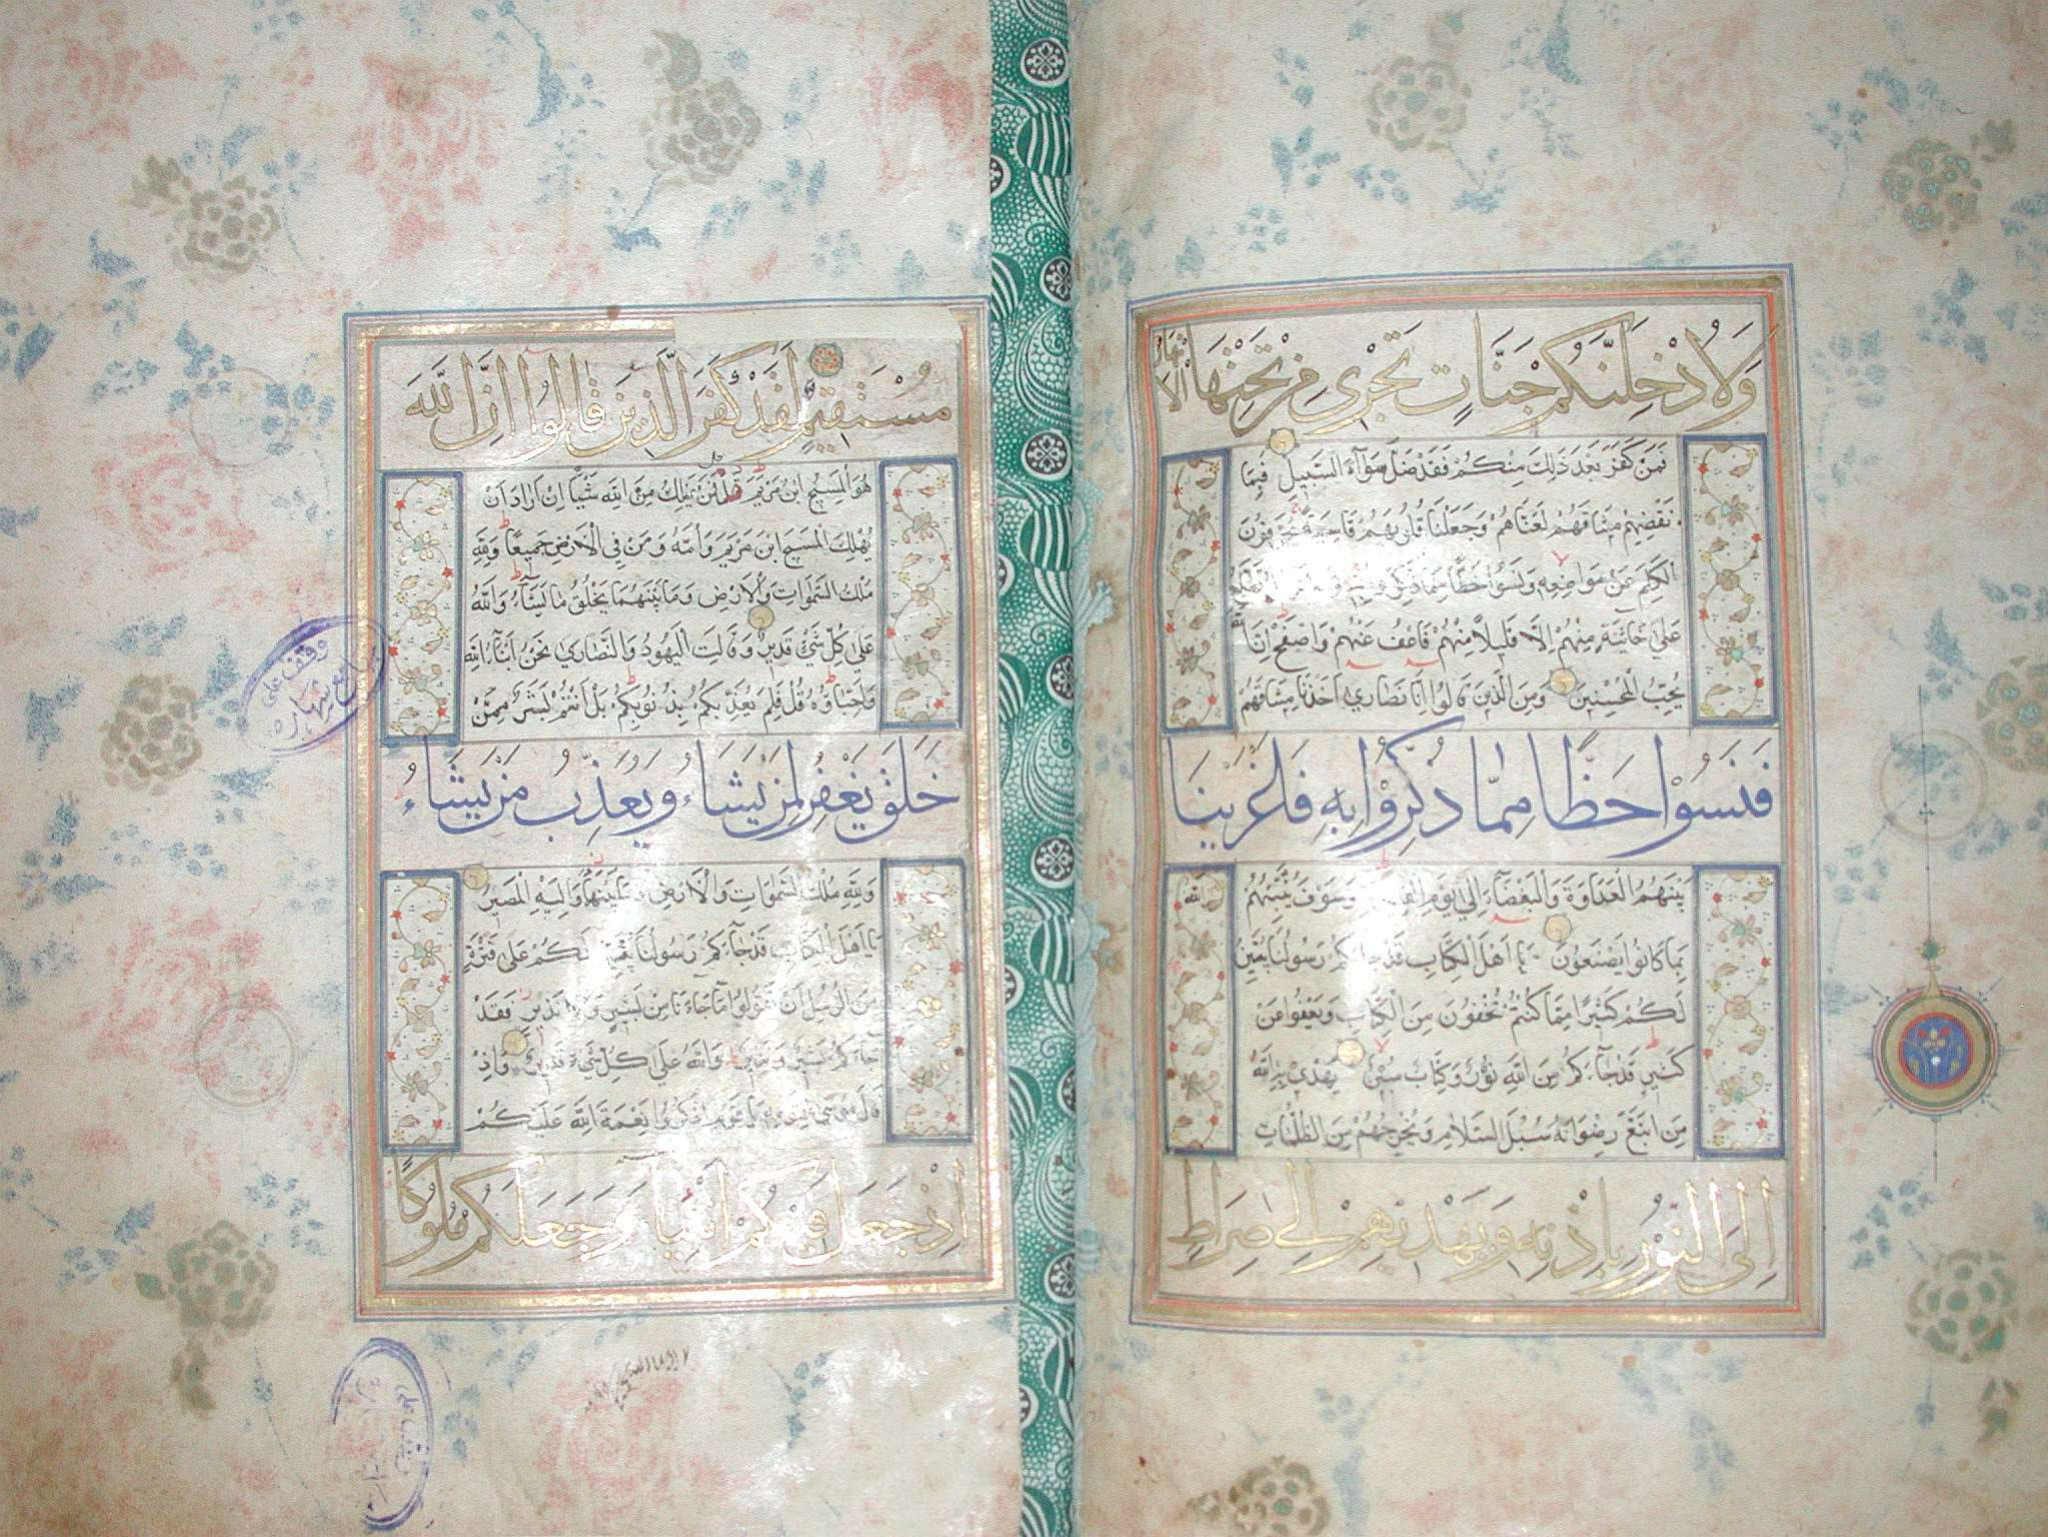 وَلَأُدْخِلَنَّكُمْ جَنَّاتٍ تَجْرِي مِنْ تَحْتِهَا الْأَنْهَارُ
فَمَنْ كَفَرَ بَعْدَ ذَلِكَ مِنْكُمْ فَقَدْ ضَلَّ سَوَآءَ السَّبِيلِ فَبِمَا
نَقْضِهِمْ مِيثَاقَهُمْ لَعَنَّاهُمْ وَجَعَلْنَا قُلُوبَهُمْ قَاسِيَةً يُحَرِّفُونَ
الْكَلِمَ عَنْ مَوَاضِعِهِ وَنَسُوا حَظًّا مِمَّا ذُكِّرُوا بِهِ
عَلَى خَائِنَةٍ مِنْهُمْ إِلَّا قَلِيلًا مِنْهُمْ فَاعْفُ عَنْهُمْ وَاصْفَحْ إِنَّ اللَّهَ
يُحِبُّ الْمُحْسِنِينَ وَمِنَ الَّذِينَ قَالُوا إِنَّا نَصَارَى أَخَذْنَا مِيثَاقَهُمْ
فَنَسُوا حَظًّا مِمَّا ذُكِّرُوا بِهِ فَأَغْرَيْنَا
بَيْنَهُمُ الْعَدَاوَةَ وَالْبَغْضَآءَ إِلَى يَوْمِ الْقِيَامَةِ وَسَوْفَ يُنَبِّئُهُمُ اللَّهُ
بِمَا كَانُوا يَصْنَعُونَ يَا أَهْلَ الْكِتَابِ قَدْ جَآءَكُمْ رَسُولُنَا يُبَيِّنُ
لَكُمْ كَثِيرًا مِمَّا كُنْتُمْ تُخْفُونَ مِنَ الْكِتَابِ وَيَعْفُوا عَنْ
كَثِيرٍ قَدْ جَآءَكُمْ مِنَ اللَّهِ نُورٌ وَكِتَابٌ مُبِينٌ يَهْدِي بِهِ اللَّهُ
مَنِ اتَّبَعَ رِضْوَانَهُ سُبُلَ السَّلَامِ وَيُخْرِجُهُمْ مِنَ الظُّلُمَاتِ
إِلَى النُّورِ بِإِذْنِهِ وَيَهْدِيهِمْ إِلَى صِرَاطٍ
مُسْتَقِيمٍ لَقَدْ كَفَرَ الَّذِينَ قَالُوا إِنَّ اللَّهَ
هُوَ الْمَسِيحُ ابْنُ مَرْيَمَ قُلْ فَمَنْ يَمْلِكُ مِنَ اللَّهِ شَيْئًا إِنْ أَرَادَ أَنْ
يُهْلِكَ الْمَسِيحَ ابْنَ مَرْيَمَ وَأُمَّهُ وَمَنْ فِي الْأَرْضِ جَمِيعًا وَلِلَّهِ
مُلْكُ السَّمَوَاتِ وَالْأَرْضِ وَمَا بَيْنَهُمَا يَخْلُقُ مَا يَشَآءُ وَاللَّهُ
عَلَى كُلِّ شَيْءٍ قَدِيرٌ وَقَالَتِ الْيَهُودُ وَالنَّصَارَى نَحْنُ أَبْنَآءُ اللَّهِ
وَأَحِبَّاؤُهُ قُلْ فَلِمَ يُعَذِّبُكُمْ بِذُنُوبِكُمْ بَلْ أَنْتُمْ بَشَرٌ مِمَّنْ
خَلَقَ يَغْفِرُ لِمَنْ يَشَاءُ وَيُعَذِّبُ مَنْ يَشَاءُ
وَلِلَّهِ مُلْكُ السَّمَوَاتِ وَالْأَرْضِ وَمَا بَيْنَهُمَا وَإِلَيْهِ الْمَصِيرُ
يَا أَهْلَ الْكِتَابِ قَدْ جَآءَكُمْ رَسُولُنَا يُبَيِّنُ لَكُمْ عَلَى فَتْرَةٍ
مِنَ الرُّسُلِ أَنْ تَقُولُوا مَا جَاءَنَا مِنْ بَشِيرٍ وَلَا نَذِيرٍ فَقَدْ
جَآءَكُمْ بَشِيرٌ وَنَذِيرٌ وَاللَّهُ عَلَى كُلِّ شَيْءٍ قَدِيرٌ وَإِذْ
قَالَ مُوسَى لِقَوْمِهِ يَا قَوْمِ اذْكُرُوا نِعْمَةَ اللَّهِ عَلَيْكُمْ
إِذْ جَعَلَ فِيكُمْ أَنْبِيَآءَ وَجَعَلَكُمْ مُلُوكًا
وقف على